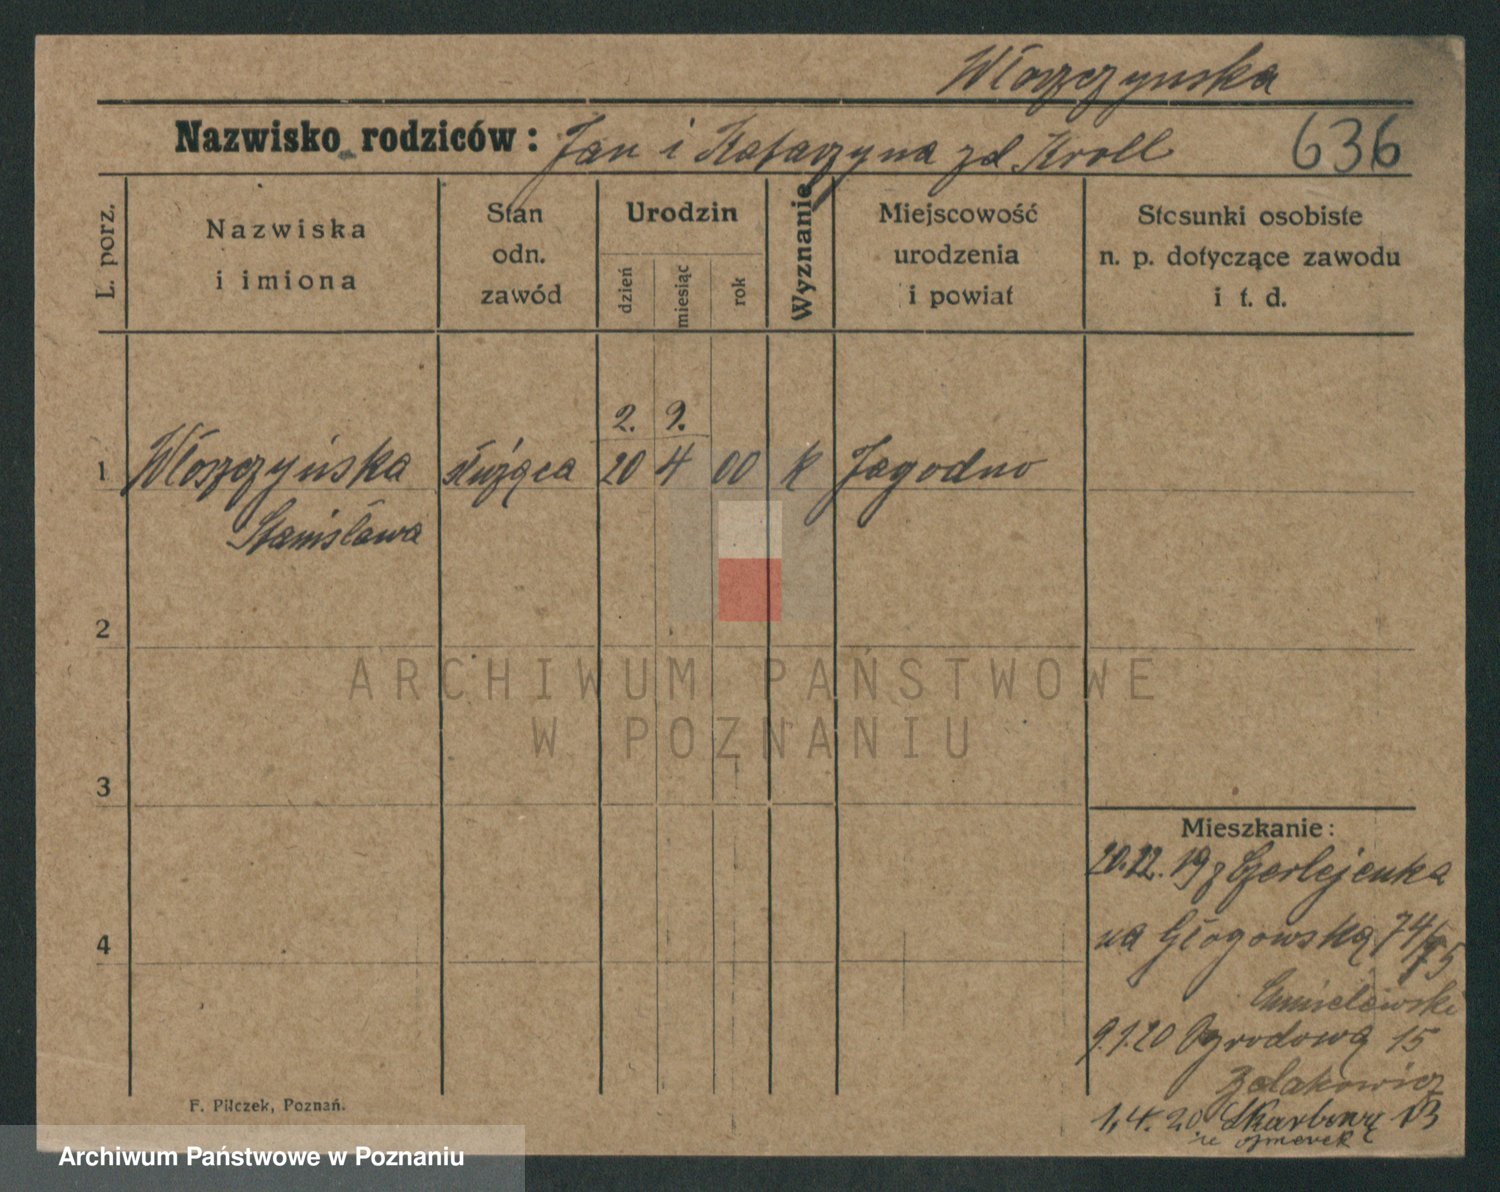 Włoszczynska
Nazwisko rodziców: Jan i Katarzyna zd. Kroll 636
L. porz.
Nazwiska
i imiona
Stan
odn.
zawód
Urodzin
dzień
miesiąc
rok
Wyznanie
Miejscowość
urodzenia
i powiat
Stosunki osobiste
n. p. dotyczące zawodu
i t. d.
2. 9.
1 Włoszczyńska służąca 20 4 00 k Jagodno
Stanisława
2
ARCHIWUM PAŃSTWOWE
W POZNANIU
3
Mieszkanie:
20.12.19 z Gerlejenka
4
na Głogowską 74/75
9.1.20 Ogrodową 15
Zolakowicz
1.4.20 Skarbową 13
F. Pilczek, Poznań.
Archiwum Państwowe w Poznaniu